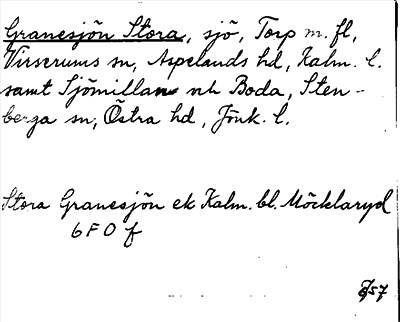 Granesjön Stora, sjö, Torp m. fl,
Virserums sn, Aspelands hd, Kalm. l.
samt Sjömillan och Boda, Sten-
berga sn, Östra hd, Jönk. l.
Stora Granesjön ek Kalm. bl. Möcklaryd
6 F 0 f
57